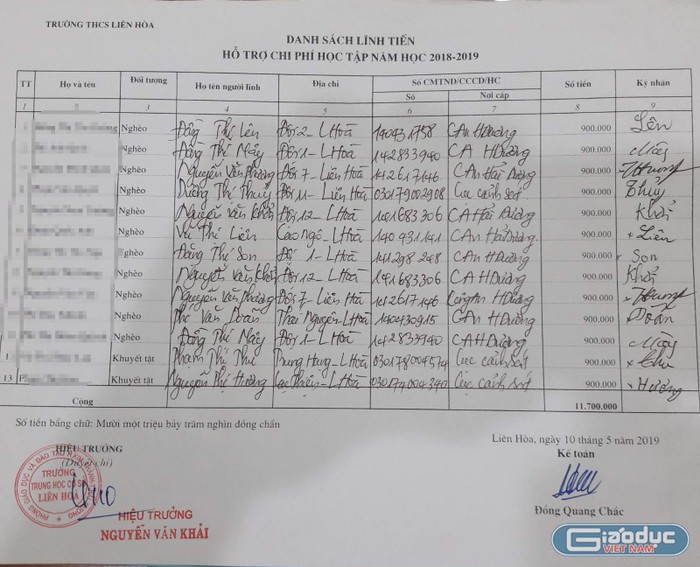 TRƯỜNG THCS LIÊN HÒA
DANH SÁCH LĨNH TIỀN
HỖ TRỢ CHI PHÍ HỌC TẬP NĂM HỌC 2018-2019
TT Họ và tên Đối tượng Họ tên người lĩnh Địa chỉ Số CMTND/CCCD/HC Số tiền Ký nhân
Số Nơi cấp
1 2 3 4 5 6 7 8 9
Nghèo Đồng Thị Lên Đội 2 - LHoà CAn HDương 900.000 Lên
Nghèo Đồng Thị Mây Đội 1 - LHoà 142833940 CA HDương 900.000 Mây
Nghèo Nguyễn Văn Phương Đội 7 - LHoà 142617146 CAn HDương 900.000
Nghèo Dương Thị Thuỷ Đội 11 - Liên Hoà 030179002908 Cục cảnh sát 900.000 Thủy
Nghèo Nguyễn Văn Khải Đội 12 - LHoà 141683306 CA Hải Dương 900.000 Khải
Nghèo Vũ Thị Liên Cao Ngô - LHoà CAn Hải Dương 900.000 Liên
Nghèo Đồng Thị Son Đội 1 - LHoà 141298248 CAn HDương 900.000 Son
Nghèo Nguyễn Văn Khải Đội 12 - LHoà 141683306 CA HDương 900.000 Khải
Nghèo Nguyễn Văn Phương Đội 7 - Liên Hoà 142617146 HDương 900.000
Nghèo Văn Đoàn LHoà 140430915 CAn HDương 900.000 Đoàn
Nghèo Đồng Thị Mây Đội 1 - LHoà 142833940 CA HDương 900.000 Mây
1 Khuyết tật Phạm Thị Thu Trung Hưng - LHoà Cục cảnh sát 900.000 Thu
13 Khuyết tật Nguyễn Thị Hương LHoà Cục cảnh sát 900.000 Hương
Cộng 11.700.000
Số tiền bằng chữ: Mười một triệu bảy trăm nghìn đồng chẵn
Liên Hòa, ngày 10 tháng 5 năm 2019
HIỆU TRƯỞNG Kế toán
(Duyệt chi)
TRƯỜNG
TRUNG HỌC CƠ SỞ
LIÊN HÒA
HIỆU TRƯỞNG
NGUYỄN VĂN KHẢI
Đồng Quang Chác
Giáo dục
VIỆT NAM